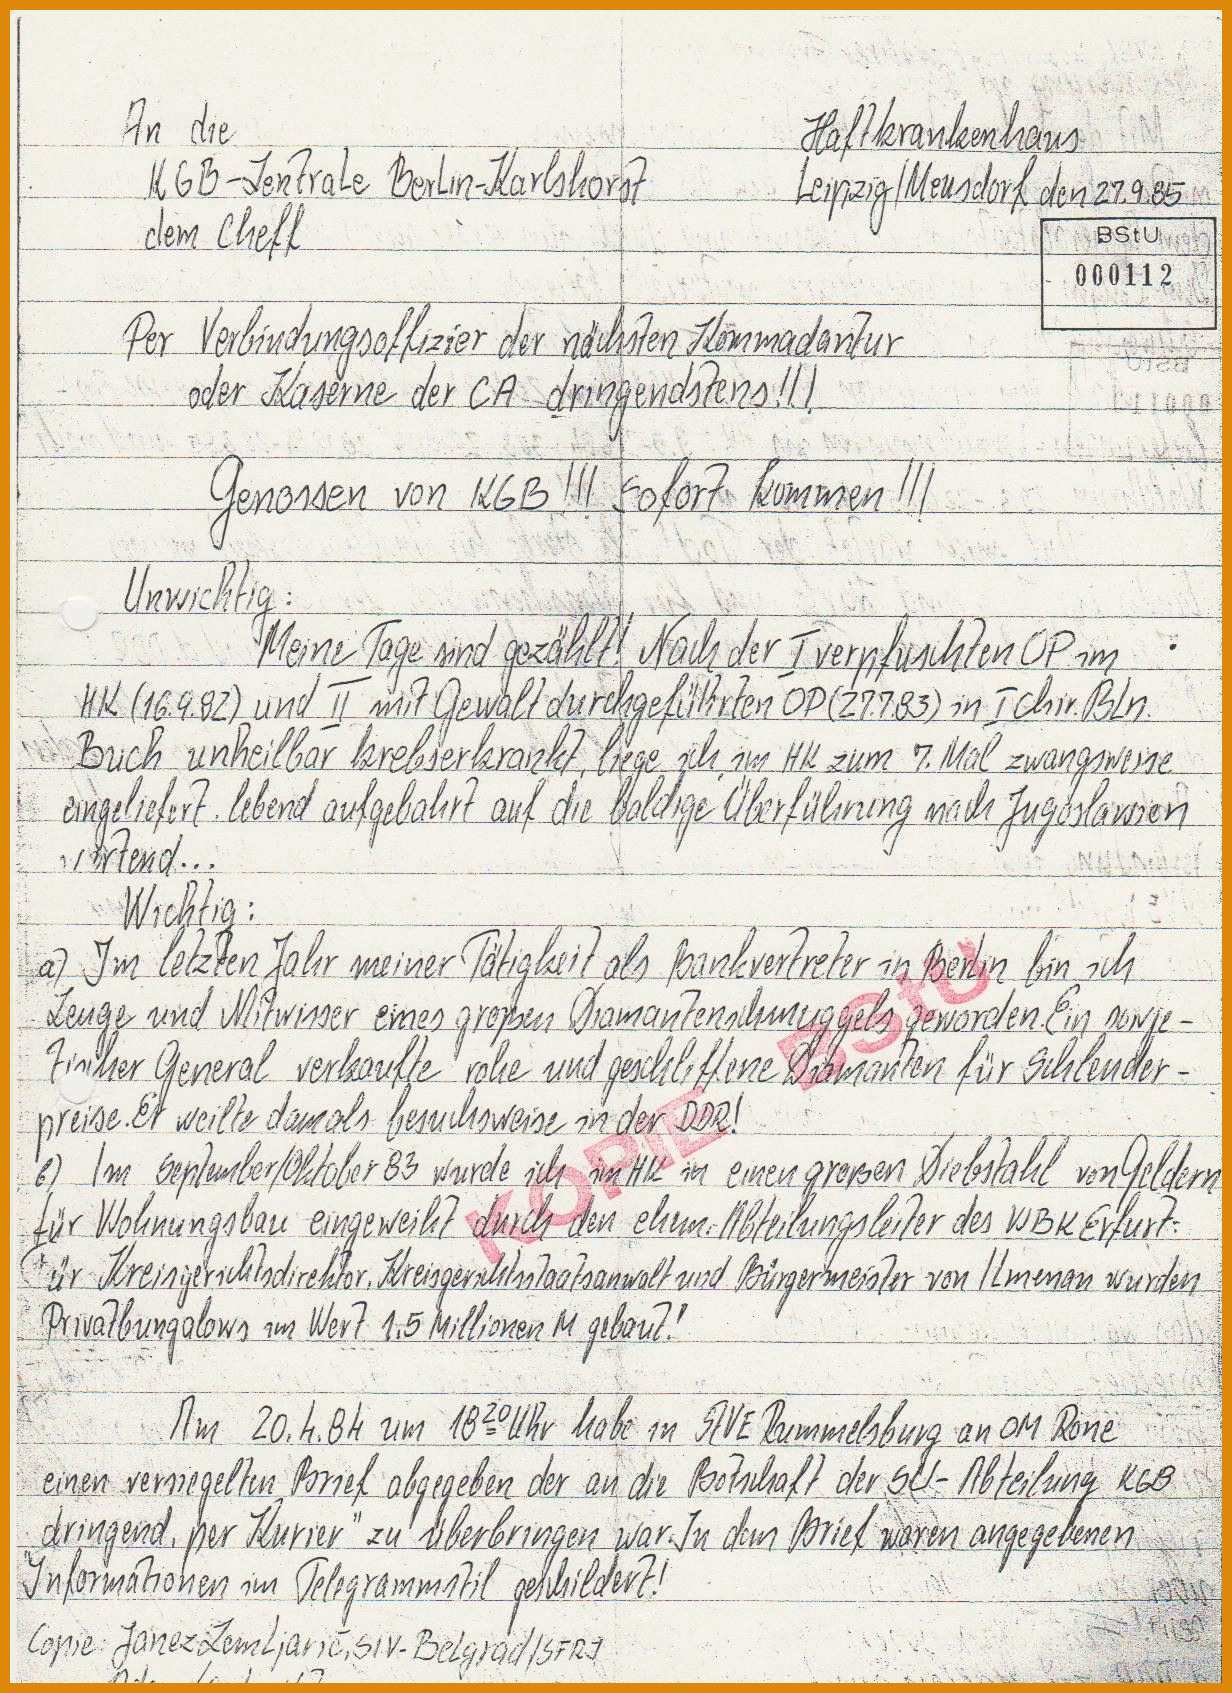 An die
Haftkrankenhaus
KGB-Zentrale Berlin-Karlshorst
Leipzig/Meusdorf den 27.9.85
dem Cheff
BStU
000112
Per Verbindungsoffizier der nächsten Kommadantur
oder Kaserne der CA dringendstens!!!
Genossen von KGB!!! Sofort kommen!!!
Unwichtig:
Meine Tage sind gezählt! Nach der I verpfuschten OP im
HK (16.9.82) und II mit Gewalt durchgeführten OP (27.7.83) in I Chir. Bln.
Buch unheilbar krebserkrankt, liege ich im HK zum 7. Mal zwangsweise
eingeliefert, lebend aufgebahrt auf die baldige Überführung nach Jugoslawien
wartend...
Wichtig:
a) Im letzten Jahr meiner Tätigkeit als Bankvertreter in Berlin bin ich
Zeuge und Mitwisser eines großen Diamantenschmuggels geworden. Ein sowje-
tischer General verkaufte rohe und geschliffene Diamanten für Schleuder-
preise. Er weilte damals besuchsweise in der DDR!
b) Im September/Oktober 83 wurde ich im HK in einen großen Diebstahl von Geldern
für Wohnungsbau eingeweiht durch den ehem. Abteilungsleiter des WBK Erfurt:
für Kreisgerichtsdirektor, Kreisgerichtsstaatsanwalt und Bürgermeister von Ilmenau wurden
Privatbungalows im Wert 1,5 Millionen M gebaut!
KOPIE BStU
Am 20.4.84 um 18 20 Uhr habe in STVE Rummelsburg an OM Rone
einen versiegelten Brief abgegeben der an die Botschaft der SU- Abteilung KGB
dringend "per Kurier" zu überbringen war. In dem Brief waren angegebenen
Informationen im Telegrammstil geschildert!
Copie: Janez Zemljarič, SIV-Belgrad/SFRJ